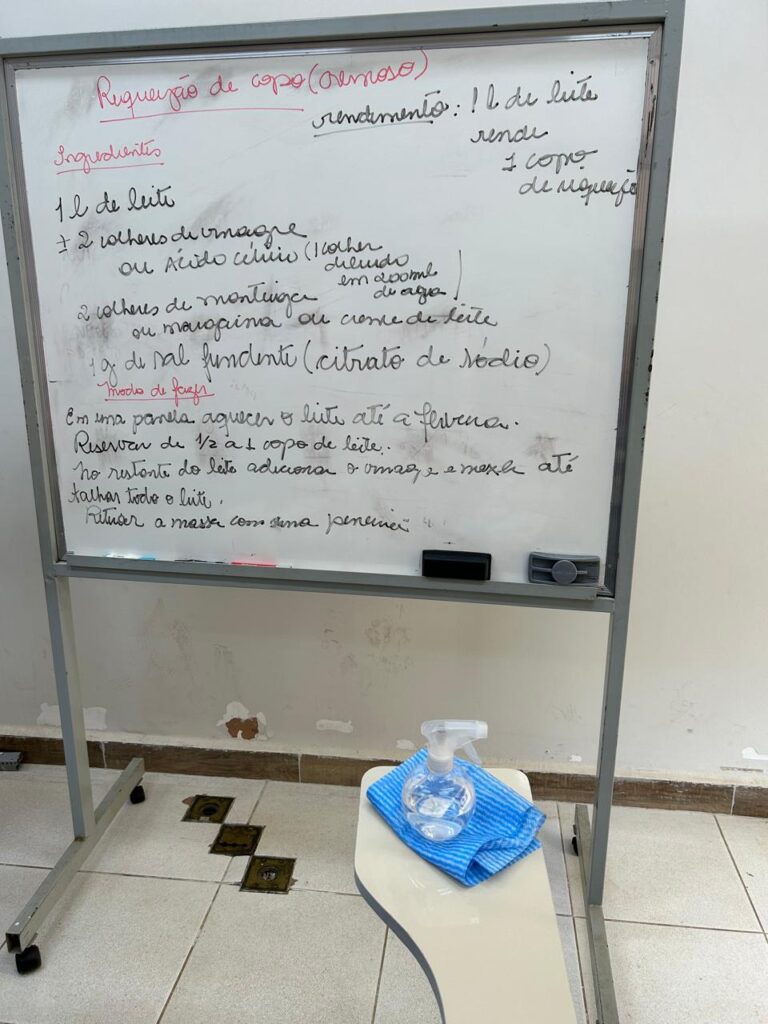 Requeijão de copo (cremoso)
rendimento: 1 l de leite
rende
1 copo
de requeijão
Ingredientes
1 l de leite
± 2 colheres de vinagre
ou Ácido cítrico (1 colher
diluido
em 200ml
de agua)
2 colheres de manteiga
ou margarina ou creme de leite
1 g de sal fundente (citrato de sódio)
Modo de fazer
Em uma panela aquecer o leite até a fervura.
Reservar de 1/2 à 1 copo de leite.
No restante do leite adiciona o vinagre e mexer até
talhar todo o leite.
Retirar a massa com uma peneira